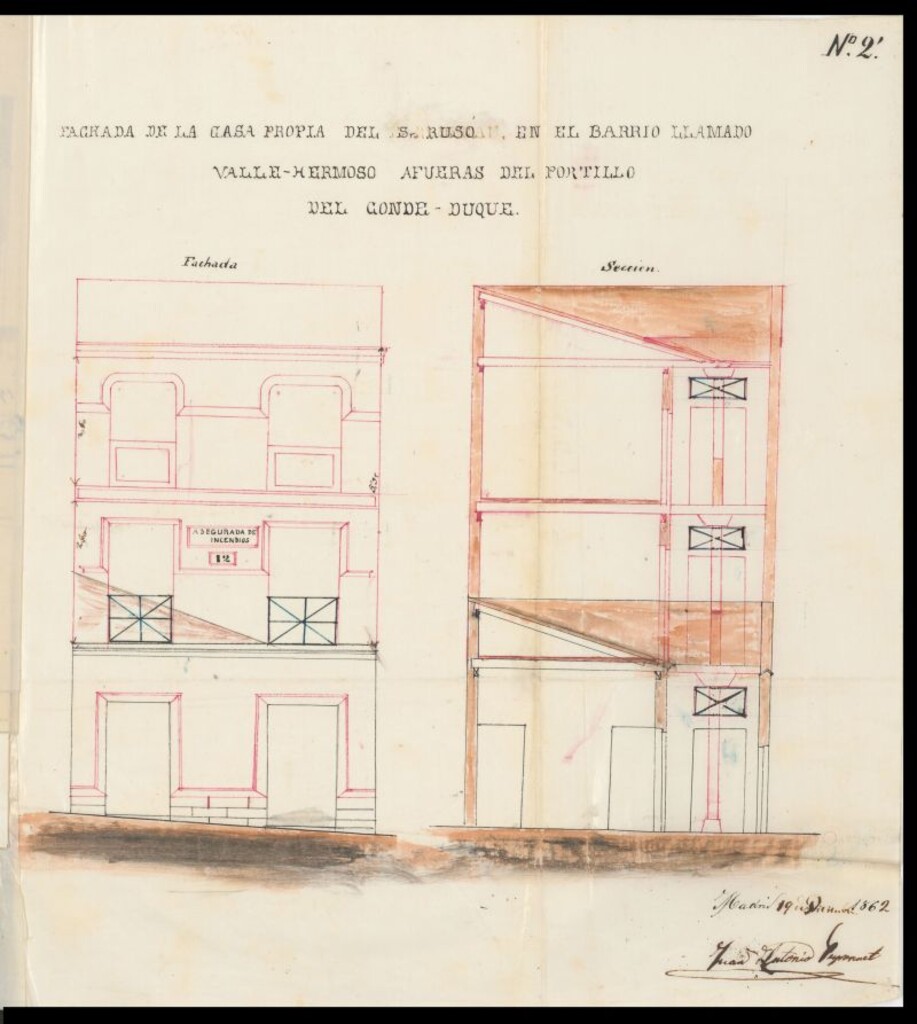 Nº. 2'.
FACHADA DE LA CASA PROPIA DEL Sr. RUSÓ, EN EL BARRIO LLAMADO
VALLE-HERMOSO AFUERAS DEL PORTILLO
DEL CONDE-DUQUE.
Fachada
Seccion.
ASEGURADA DE
INCENDIOS
12
Madrid 19 de 1862
Juan Antonio